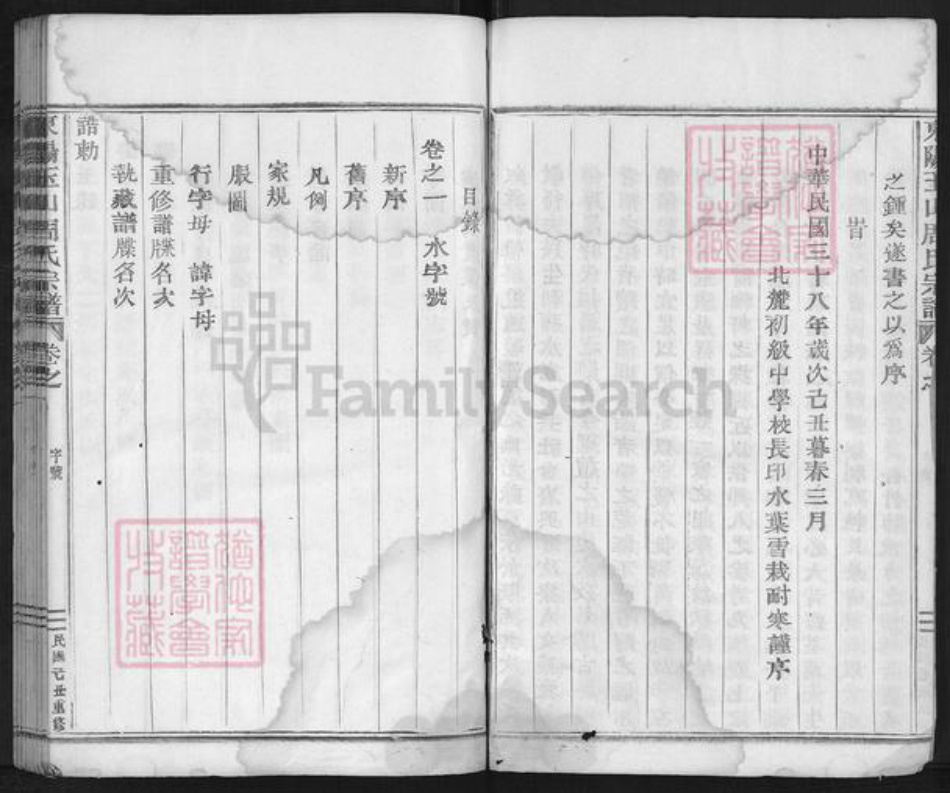 之鍾矣遂書之以為序
旹
中華民國三十八年歲次己丑暮春三月
北麓初級中學校長印水葉雪栽耐寒謹序
東陽玉山周氏宗譜 卷之
目錄
卷之一 水字號
新序
舊序
凡例
家規
服圖
行字母 諱字母
重修譜牒名次
執藏譜牒名次
誥勅
東陽玉山周氏宗譜 卷之 字號 民國己丑重修
FamilySearch
譜學會
收藏
譜學會
收藏